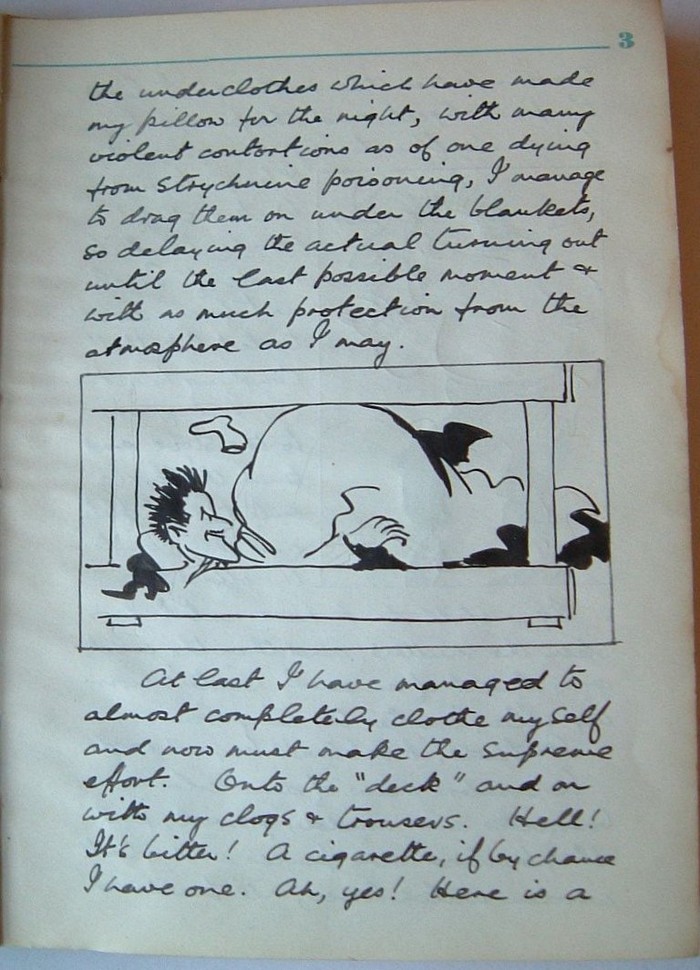 3
the underclothes which have made
my pillow for the night, with many
violent contortions as of one dying
from strychnine poisoning, I manage
to drag them on under the blankets,
so delaying the actual turning out
until the last possible moment &
with as much protection from the
atmosphere as I may.
At last I have managed to
almost completely clothe myself
and now must make the supreme
effort. Onto the "deck" and on
with my clogs & trousers. Hell!
It's bitter! A cigarette, if by chance
I have one. Ah, yes! Here is a